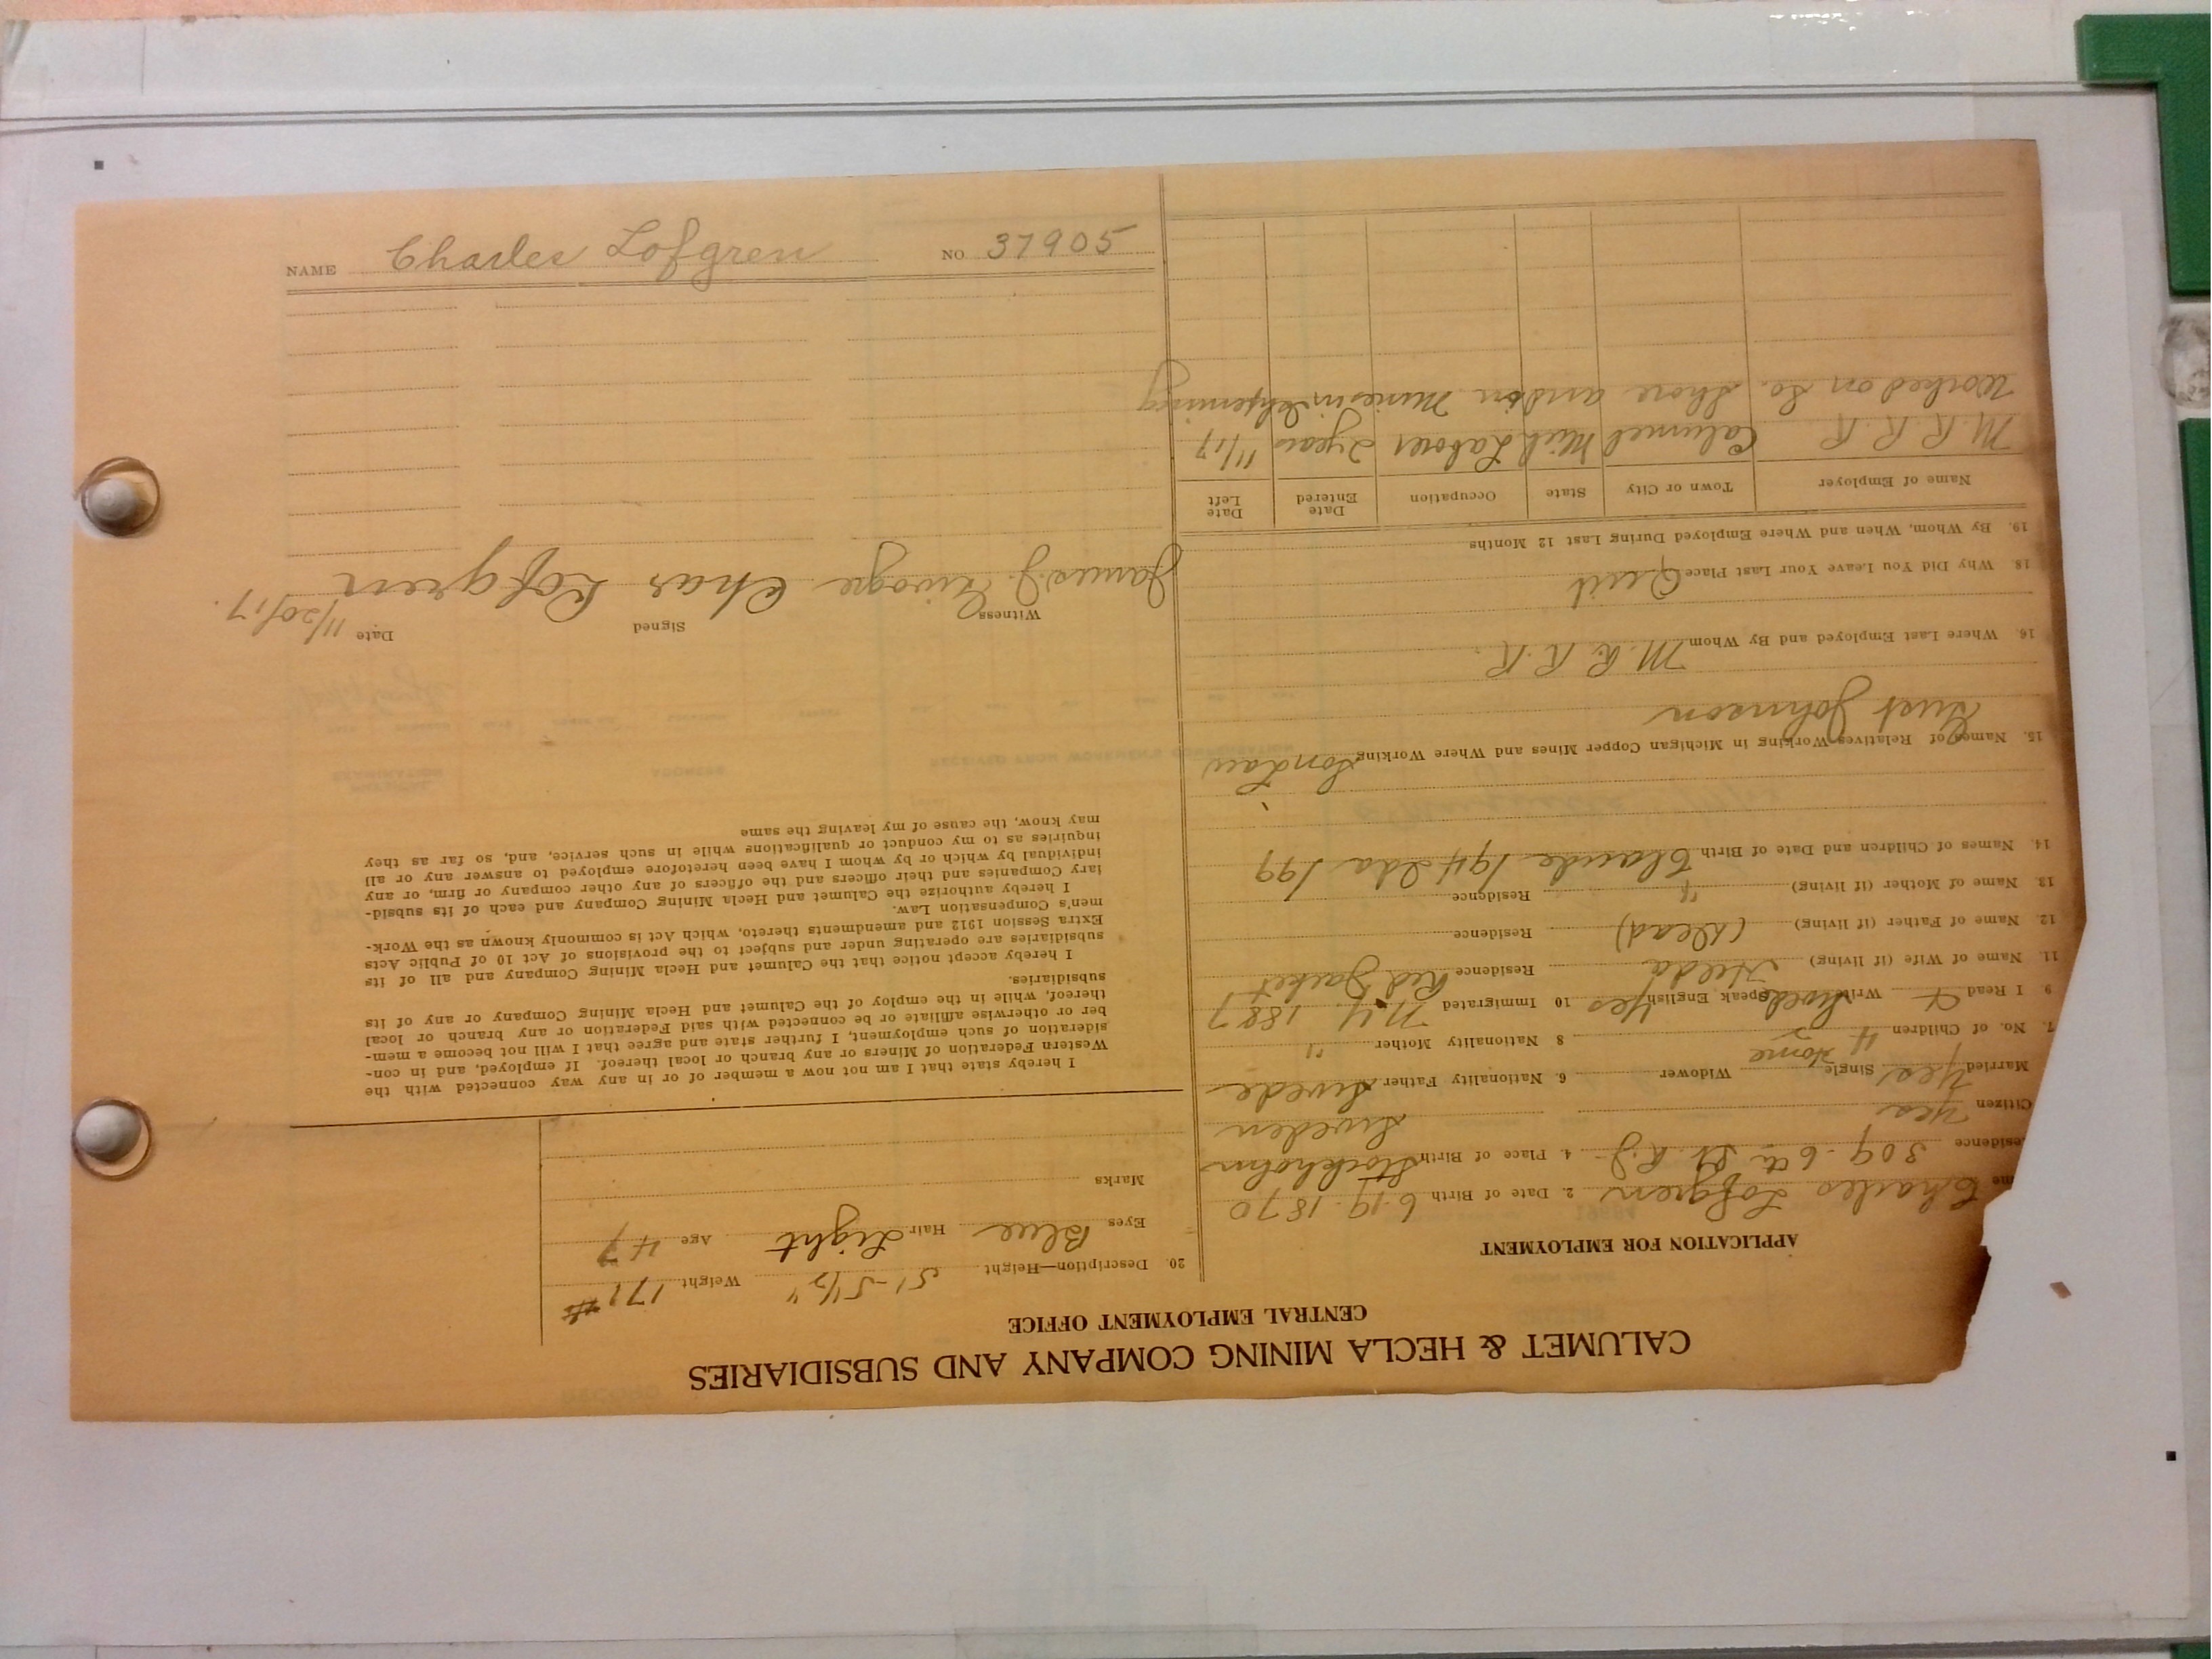 CALUMET & HECLA MINING COMPANY AND SUBSIDIARIES
CENTRAL EMPLOYMENT OFFICE
APPLICATION FOR EMPLOYMENT
me Charles Lofgren 2. Date of Birth 6-19-1870
esidence 309-6th St. R.J. 4. Place of Birth Stockholm
Citizen yes Sweden
Married yes Single Widower 6. Nationality Father Swede
7. No. of Children 4 2 home 8 Nationality Mother "
9. I Read & Write Swede Speak English yes 10 Immigrated N.Y. 1887
11. Name of Wife (if living) Hilda Residence Red Jacket
12. Name of Father (if living) (Dead) Residence
13. Name of Mother (if living) " Residence
14. Names of Children and Date of Birth Claude 19 Ida 19
15. Names of Relatives Working in Michigan Copper Mines and Where Working
Gust Johnson
16. Where Last Employed and By Whom M.R.R.R.
18. Why Did You Leave Your Last Place Quit
19. By Whom, When and Where Employed During Last 12 Months
Name of Employer Town or City State Occupation Date Entered Date Left
M.R.R.R Calumet Mich Laborer 2 years 11/17
Worked on So. Shore and in Mines in Ishpeming
20. Description—Height 5'-5 1/2" Weight 171 #
Eyes Blue Hair Light Age 47
Marks
I hereby state that I am not now a member of or in any way connected with the
Western Federation of Miners or any branch or local thereof. If employed, and in con-
sideration of such employment, I further state and agree that I will not become a mem-
ber or otherwise affiliate or be connected with said Federation or any branch or local
thereof, while in the employ of the Calumet and Hecla Mining Company or any of its
subsidiaries.
I hereby accept notice that the Calumet and Hecla Mining Company and all of its
subsidiaries are operating under and subject to the provisions of Act 10 of Public Acts
Extra Session 1912 and amendments thereto, which Act is commonly known as the Work-
men's Compensation Law.
I hereby authorize the Calumet and Hecla Mining Company and each of its subsid-
iary Companies and their officers and the officers of any other company or firm, or any
individual by which or by whom I have been heretofore employed to answer any or all
inquiries as to my conduct or qualifications while in such service, and, so far as they
may know, the cause of my leaving the same
Witness Signed Date 11/20/17.
James J. Chas Lofgren
NAME Charles Lofgren NO 37905